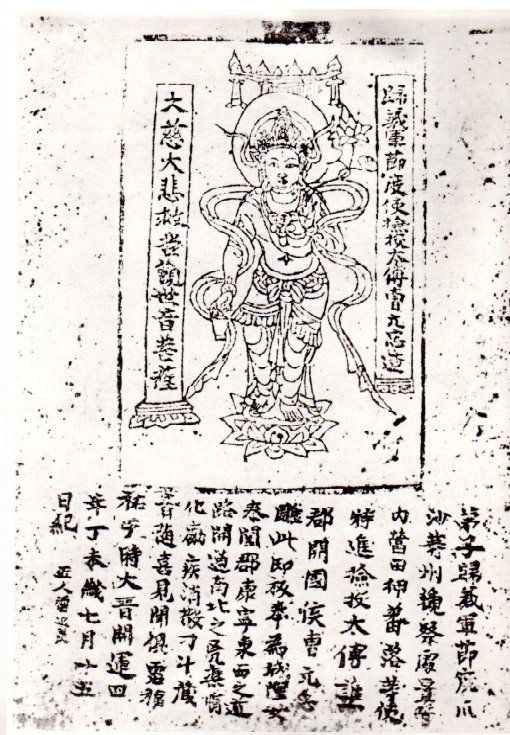 歸義軍節度使檢校太傅曹元忠造
大慈大悲救苦觀世音菩薩
弟子歸義軍節度瓜
沙等州觀察處置管
內營田押蕃落等使
特進檢校太傅譙
郡開國侯曹元忠
雕此印板奉為城隍安
泰闔郡康寧東西之道
路開通南北之兇渠順
化勵疾消散刁斗藏
音隨喜見聞俱霑福
祐于時大晉開運四
年丁未歲七月十五
日紀 匠人雷延美